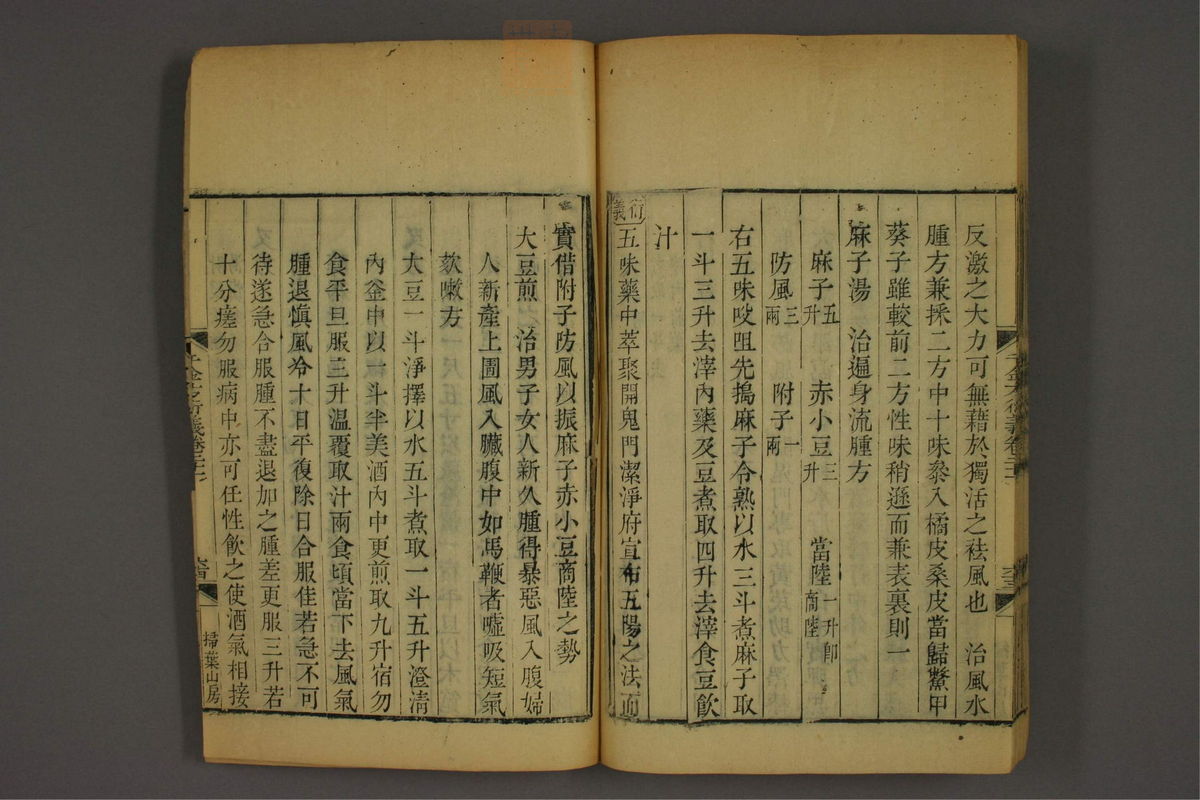 反激之大力可無藉於獨活之祛風也　治風水
腫方兼採二方中十味黍入橘皮桑皮當歸鱉甲
葵子雖較前二方性味稍遜而兼表裏則一
麻子湯　治遍身流腫方
麻子五升　赤小豆三升　當陸一升即商陸
防風三兩　附子一兩
右五味㕮咀先搗麻子令熟以水三斗煮麻子取
一斗三升去滓內藥及豆煮取四升去滓食豆飲
汁
衍義
五味藥中萃聚開鬼門潔淨府宣布五陽之法而
實借附子防風以振麻子赤小豆商陸之勢
大豆煎　治男子女人新久腫得暴惡風入腹婦
人新產上圊風入臟腹中如馬鞭者噓吸短氣
欬嗽方
大豆一斗淨擇以水五斗煮取一斗五升澄清
內釜中以一斗半美酒內中更煎取九升宿勿
食平旦服三升溫覆取汁兩食頃當下去風氣
腫退慎風冷十日平復除日合服佳若急不可
待遂急合服腫不盡退加之腫差更服三升若
十分瘥勿服病中亦可任性飲之使酒氣相接
掃葉山房